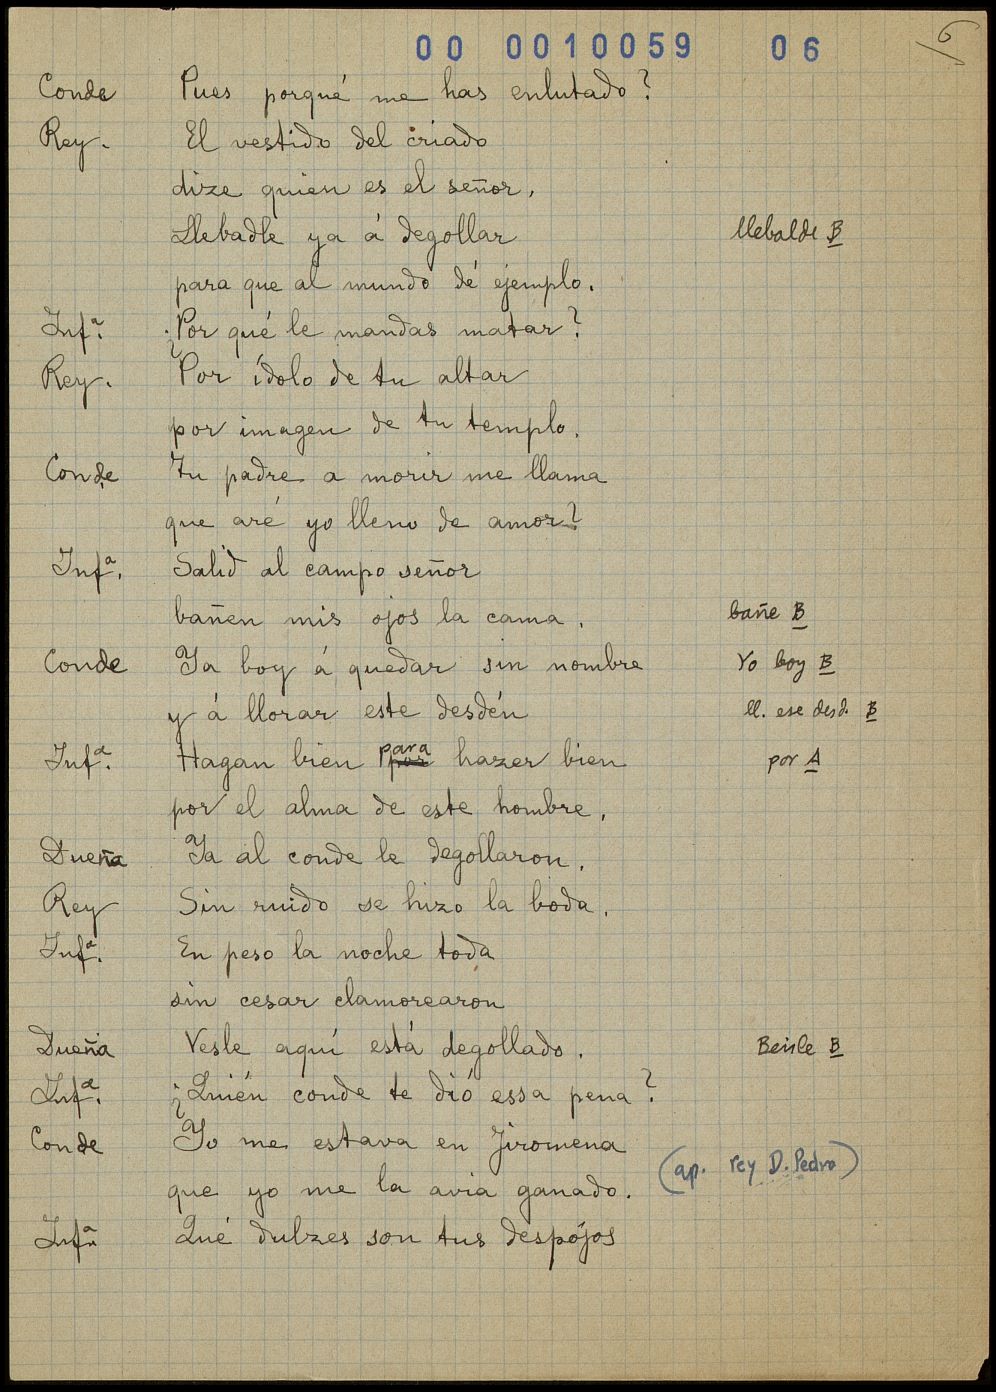 00 0010059 06
6
Conde Pues porqué me has enlutado?
Rey. El vestido del criado
dize quien es el señor,
Llebadle ya á degollar llebalde B
para que al mundo dé ejemplo.
Infª. ¿Por qué le mandas matar?
Rey. Por ídolo de tu altar
por imagen de tu templo.
Conde Tu padre a morir me llama
que aré yo lleno de amor?
Infª. Salid al campo señor
bañen mis ojos la cama. bañe B
Conde Ya boy á quedar sin nombre Yo boy B
y á llorar este desdén ll. ese desd. B
Infª. Hagan bien por para hazer bien por A
por el alma de este hombre.
Dueña Ya al conde le degollaron.
Rey Sin ruido se hizo la boda.
Infª. En peso la noche toda
sin cesar clamorearon
Dueña Vesle aquí está degollado. Beisle B
Infª. ¿Quién conde te dió essa pena?
Conde Yo me estava en Jiromena
(ap. rey D. Pedro)
que yo me la avia ganado.
Infª Qué dulzes son tus despójos